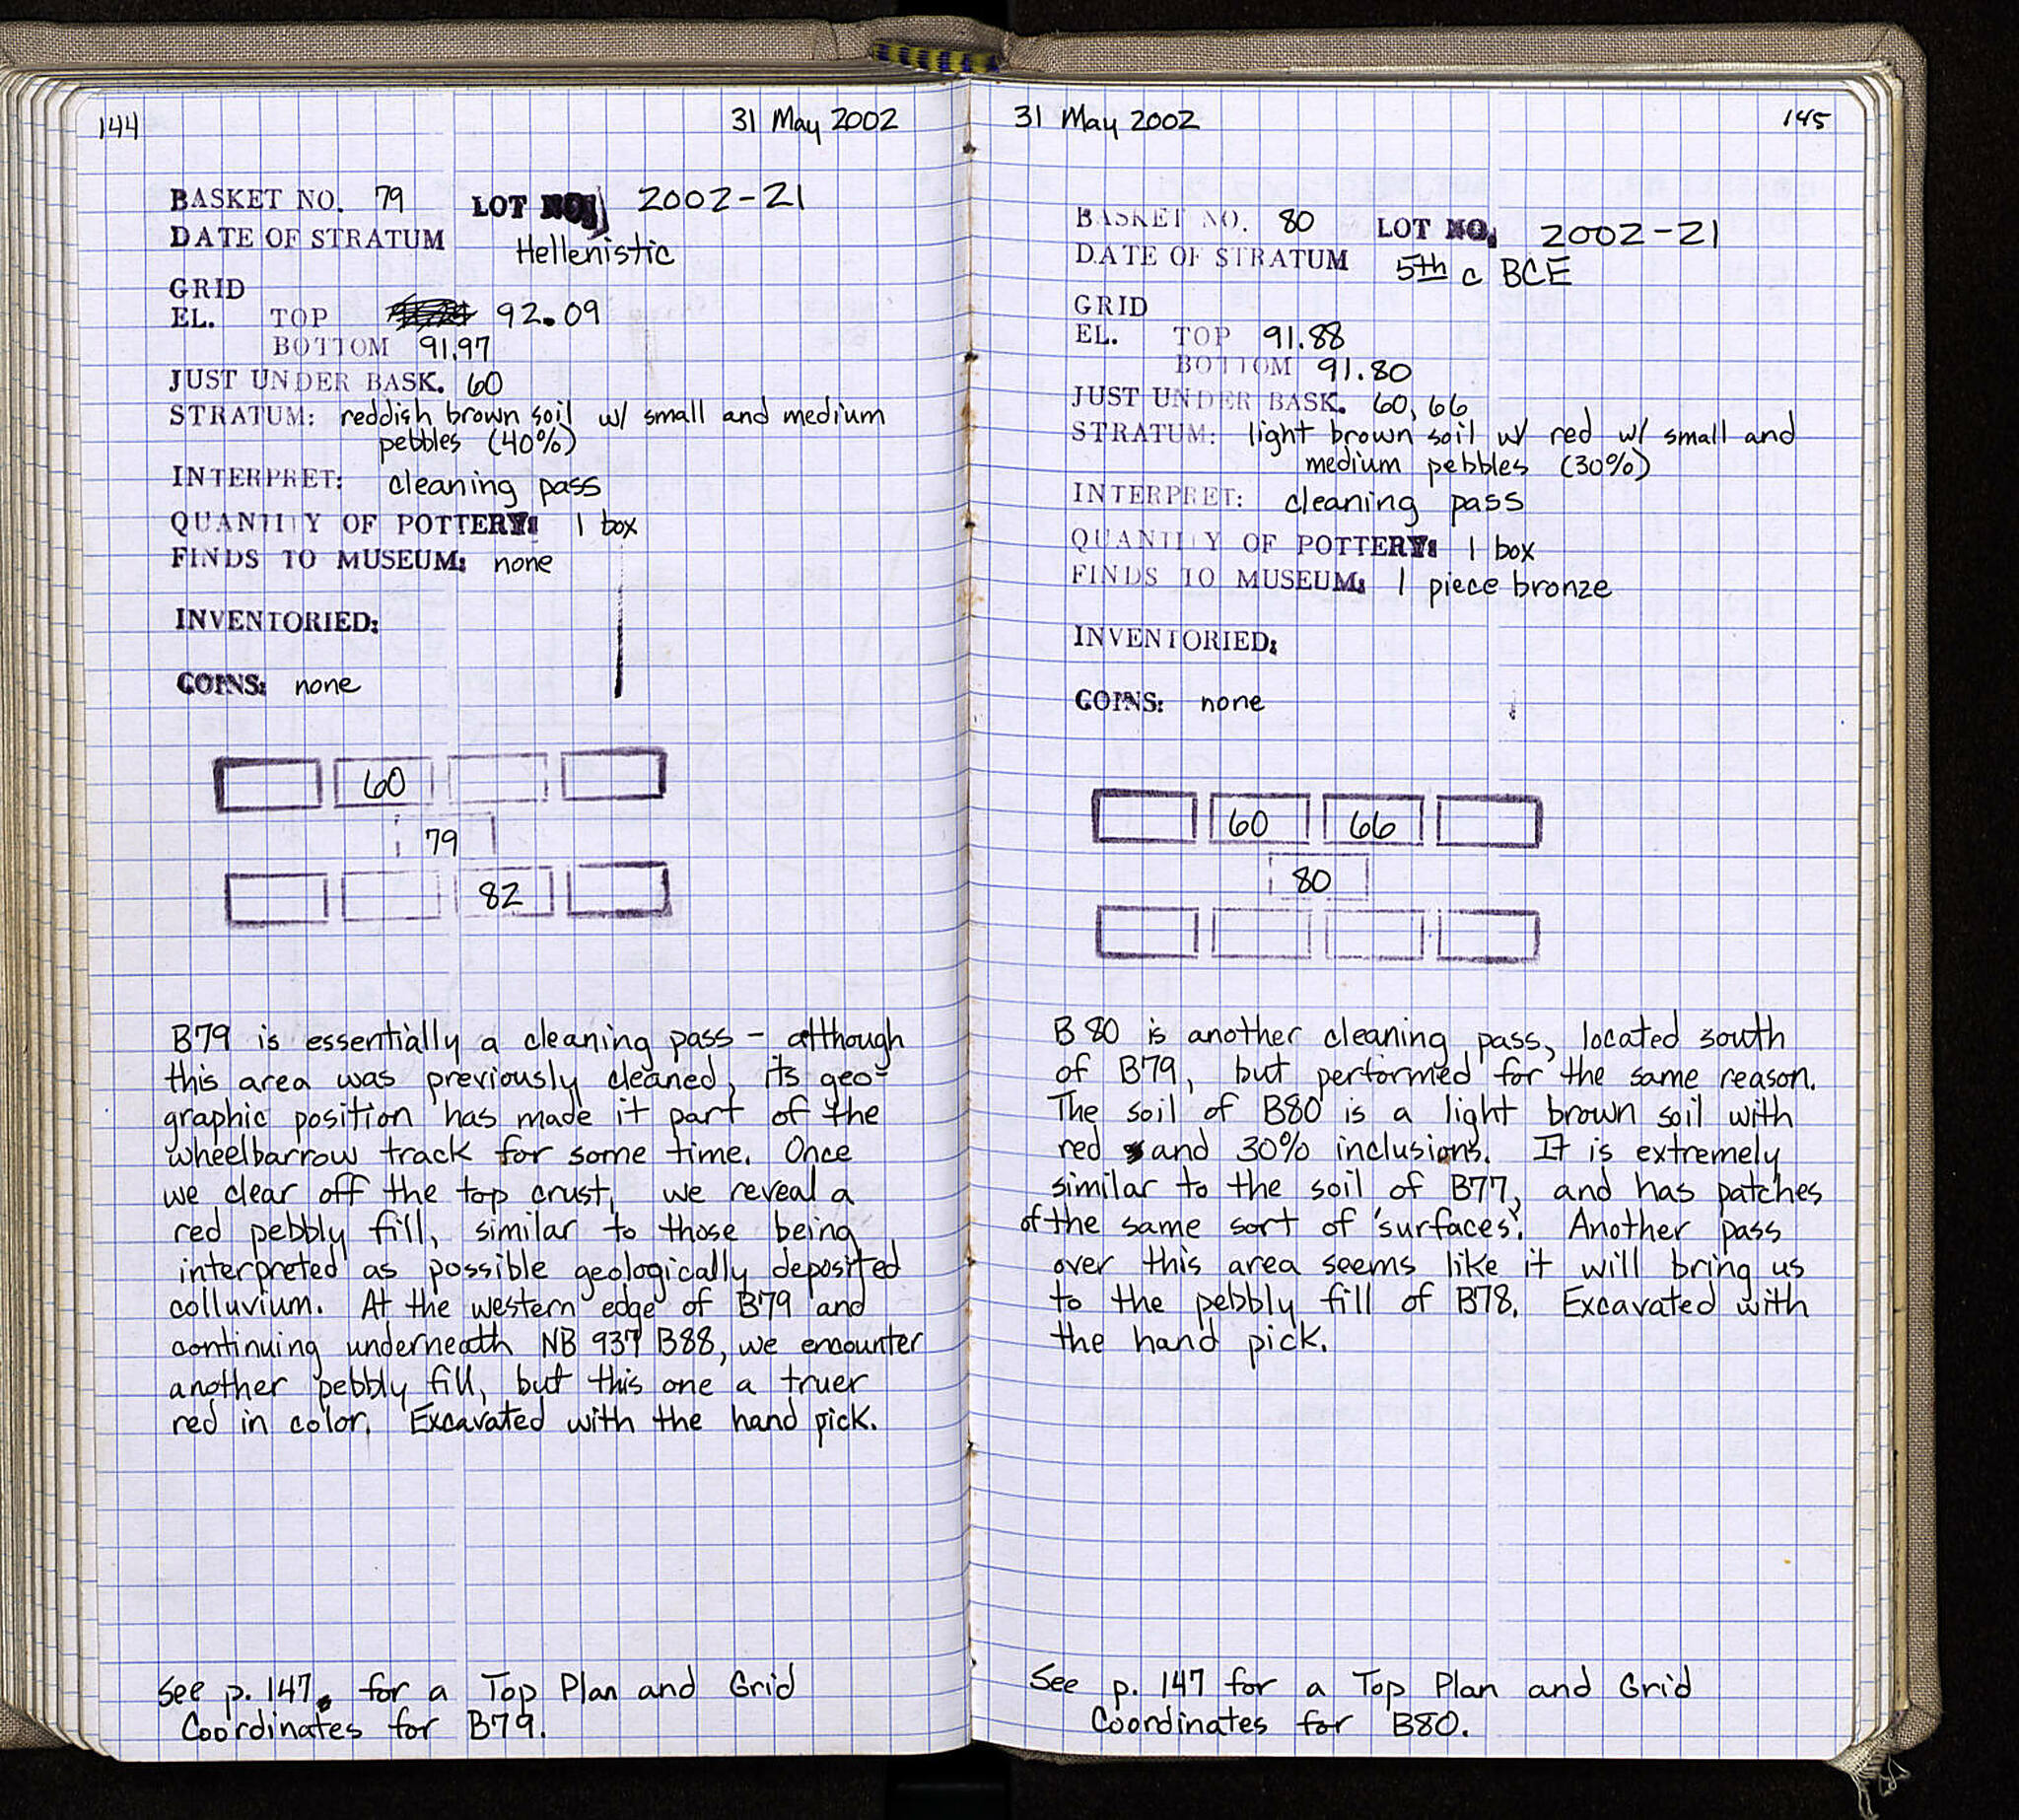 144
31 May 2002
BASKET NO. 79 LOT NO. 2002-21
DATE OF STRATUM Hellenistic
GRID
EL. TOP 92.09
BOTTOM 91.97
JUST UNDER BASK. 60
STRATUM: reddish brown soil w/ small and medium
pebbles (40%)
INTERPRET: cleaning pass
QUANTITY OF POTTERY: 1 box
FINDS TO MUSEUM: none
INVENTORIED:
COINS: none
60
79
82
B79 is essentially a cleaning pass - although
this area was previously cleaned, its geo-
graphic position has made it part of the
wheelbarrow track for some time. Once
we clear off the top crust, we reveal a
red pebbly fill, similar to those being
interpreted as possible geologically deposited
colluvium. At the western edge of B79 and
continuing underneath NB 937 B88, we encounter
another pebbly fill, but this one a truer
red in color. Excavated with the hand pick.
See p. 147. for a Top Plan and Grid
Coordinates for B79.
31 May 2002
145
BASKET NO. 80 LOT NO. 2002-21
DATE OF STRATUM 5th c BCE
GRID
EL. TOP 91.88
BOTTOM 91.80
JUST UNDER BASK. 60, 66
STRATUM: light brown soil w/ red w/ small and
medium pebbles (30%)
INTERPRET: cleaning pass
QUANTITY OF POTTERY: 1 box
FINDS TO MUSEUM: 1 piece bronze
INVENTORIED:
COINS: none
60 66
80
B80 is another cleaning pass, located south
of B79, but performed for the same reason.
The soil of B80 is a light brown soil with
red and 30% inclusions. It is extremely
similar to the soil of B77, and has patches
of the same sort of 'surfaces'. Another pass
over this area seems like it will bring us
to the pebbly fill of B78. Excavated with
the hand pick.
See p. 147 for a Top Plan and Grid
Coordinates for B80.